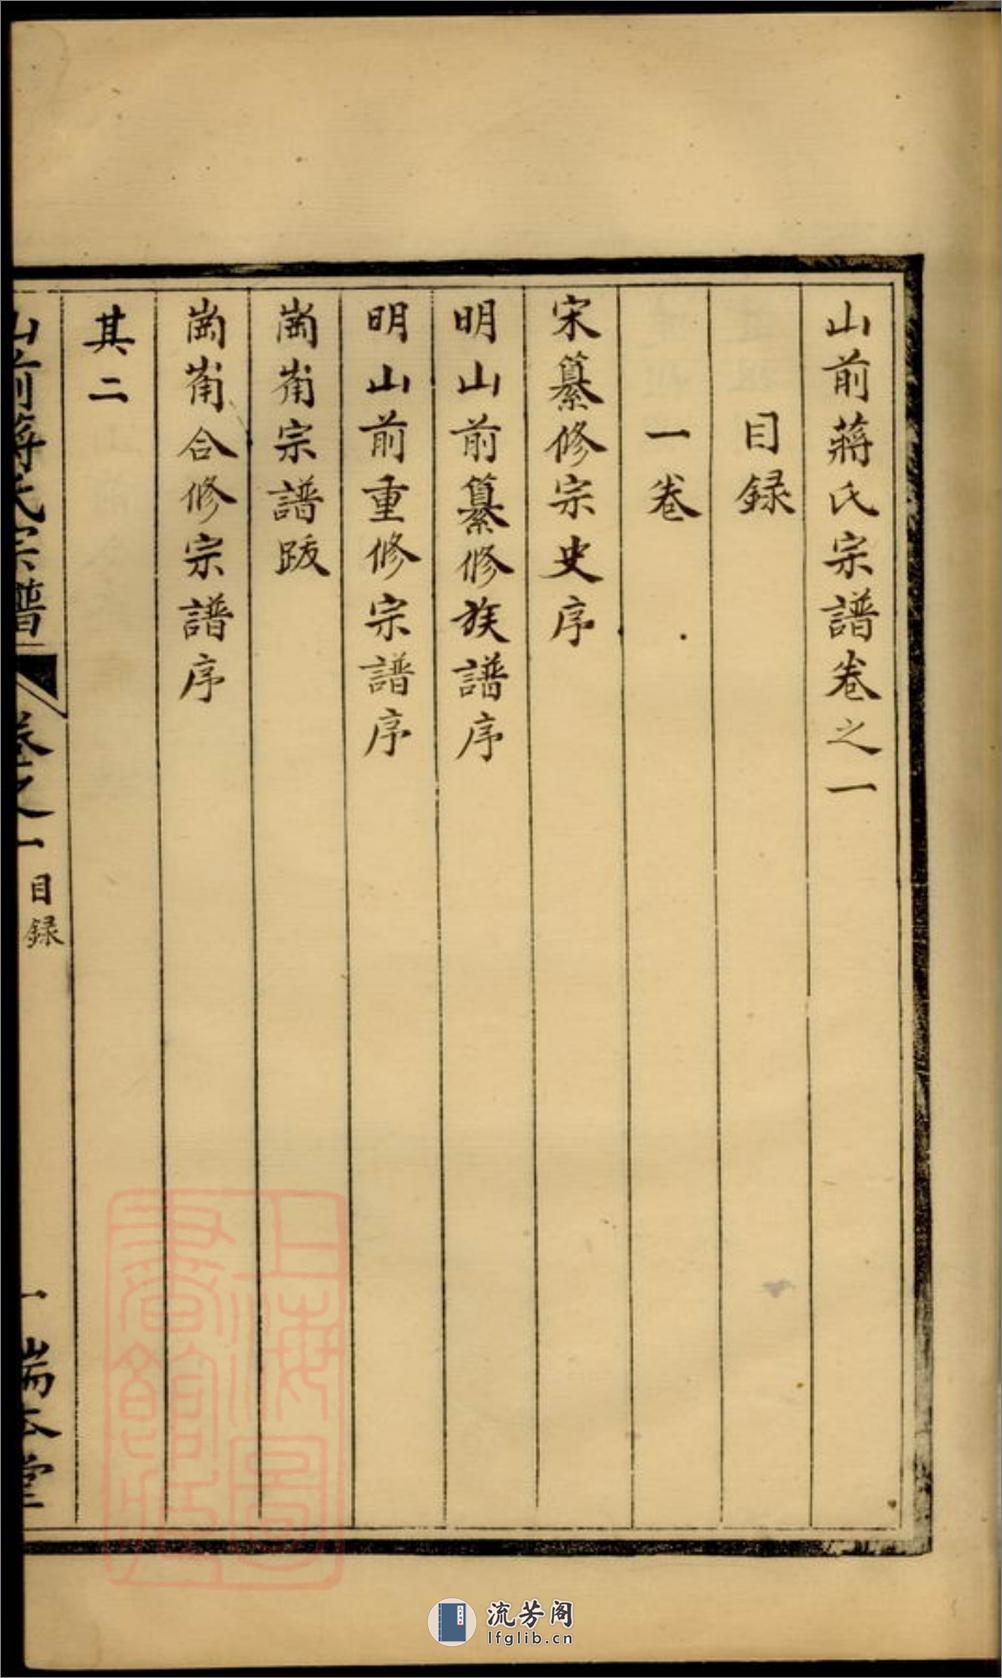 山前蔣氏宗譜卷之一
目録
一卷
宋纂修宗史序
明山前纂修族譜序
明山前重修宗譜序
崗峟宗譜跋
崗峟合修宗譜序
其二
山前蔣氏宗譜
卷之一
目録
一
堂
上海圖
書館藏
流芳阁
lfglib.cn